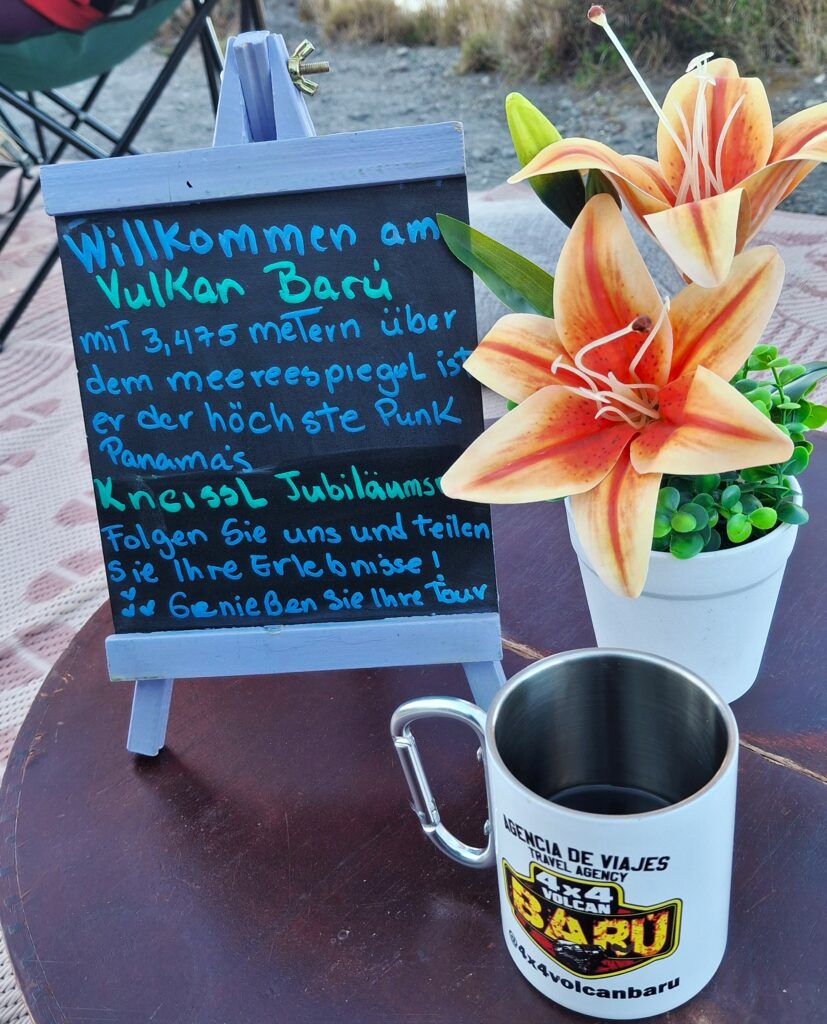 Willkommen am
Vulkan Barú
mit 3,475 metern über
dem meereespiegel ist
er der höchste Punk
Panama's
Kneissl
Folgen Sie uns und teilen
Sie Ihre Erlebnisse!
Genießen Sie Ihre Tour
AGENCIA DE VIAJES
TRAVEL AGENCY
4x4
VOLCAN
BARÚ
@4x4volcanbaru